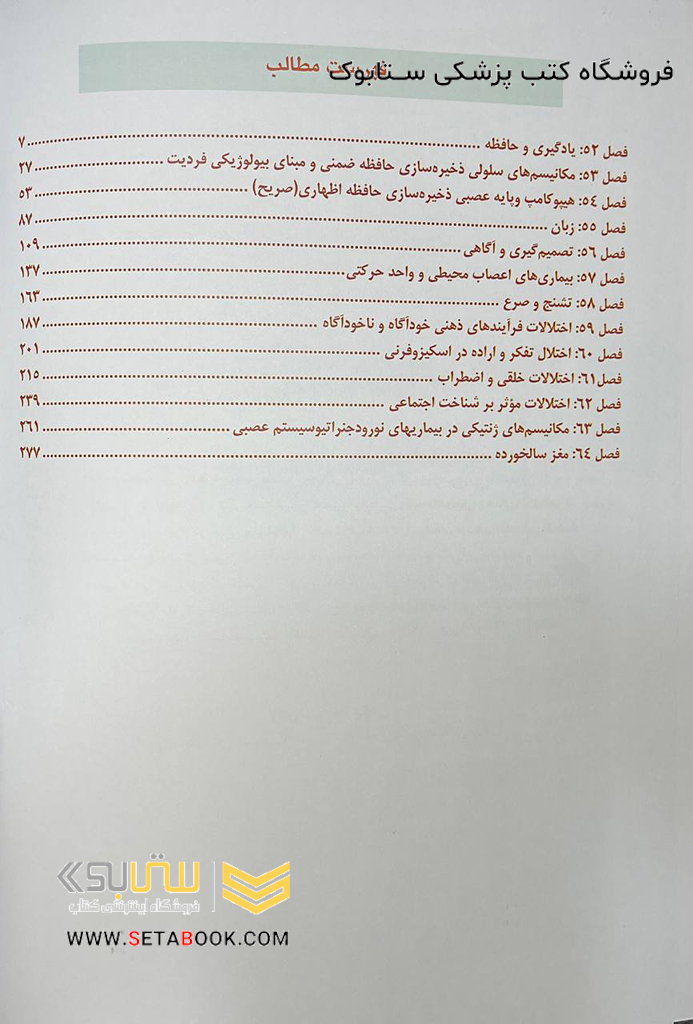 فروشگاه کتب پزشکی ستابوک
فهرست مطالب
فصل ٥٢: یادگیری و حافظه ........ ٧
فصل ٥٣: مکانیسم‌های سلولی ذخیره‌سازی حافظه ضمنی و مبنای بیولوژیکی فردیت ........ ٢٧
فصل ٥٤: هیپوکامپ وپایه عصبی ذخیره‌سازی حافظه اظهاری(صریح) ........ ٥٣
فصل ٥٥: زبان ........ ٨٧
فصل ٥٦: تصمیم‌گیری و آگاهی ........ ١٠٩
فصل ٥٧: بیماری‌های اعصاب محیطی و واحد حرکتی ........ ١٣٧
فصل ٥٨: تشنج و صرع ........ ١٦٣
فصل ٥٩: اختلالات فرآیندهای ذهنی خودآگاه و ناخودآگاه ........ ١٨٧
فصل ٦٠: اختلال تفکر و اراده در اسکیزوفرنی ........ ٢٠١
فصل٦١: اختلالات خلقی و اضطراب ........ ٢١٥
فصل ٦٢: اختلالات مؤثر بر شناخت اجتماعی ........ ٢٣٩
فصل ٦٣: مکانیسم‌های ژنتیکی در بیماریهای نورودجنراتیوسیستم عصبی ........ ٢٦١
فصل ٦٤: مغز سالخورده ........ ٢٧٧
ستابوک
فروشگاه اینترنتی کتاب
WWW.SETABOOK.COM